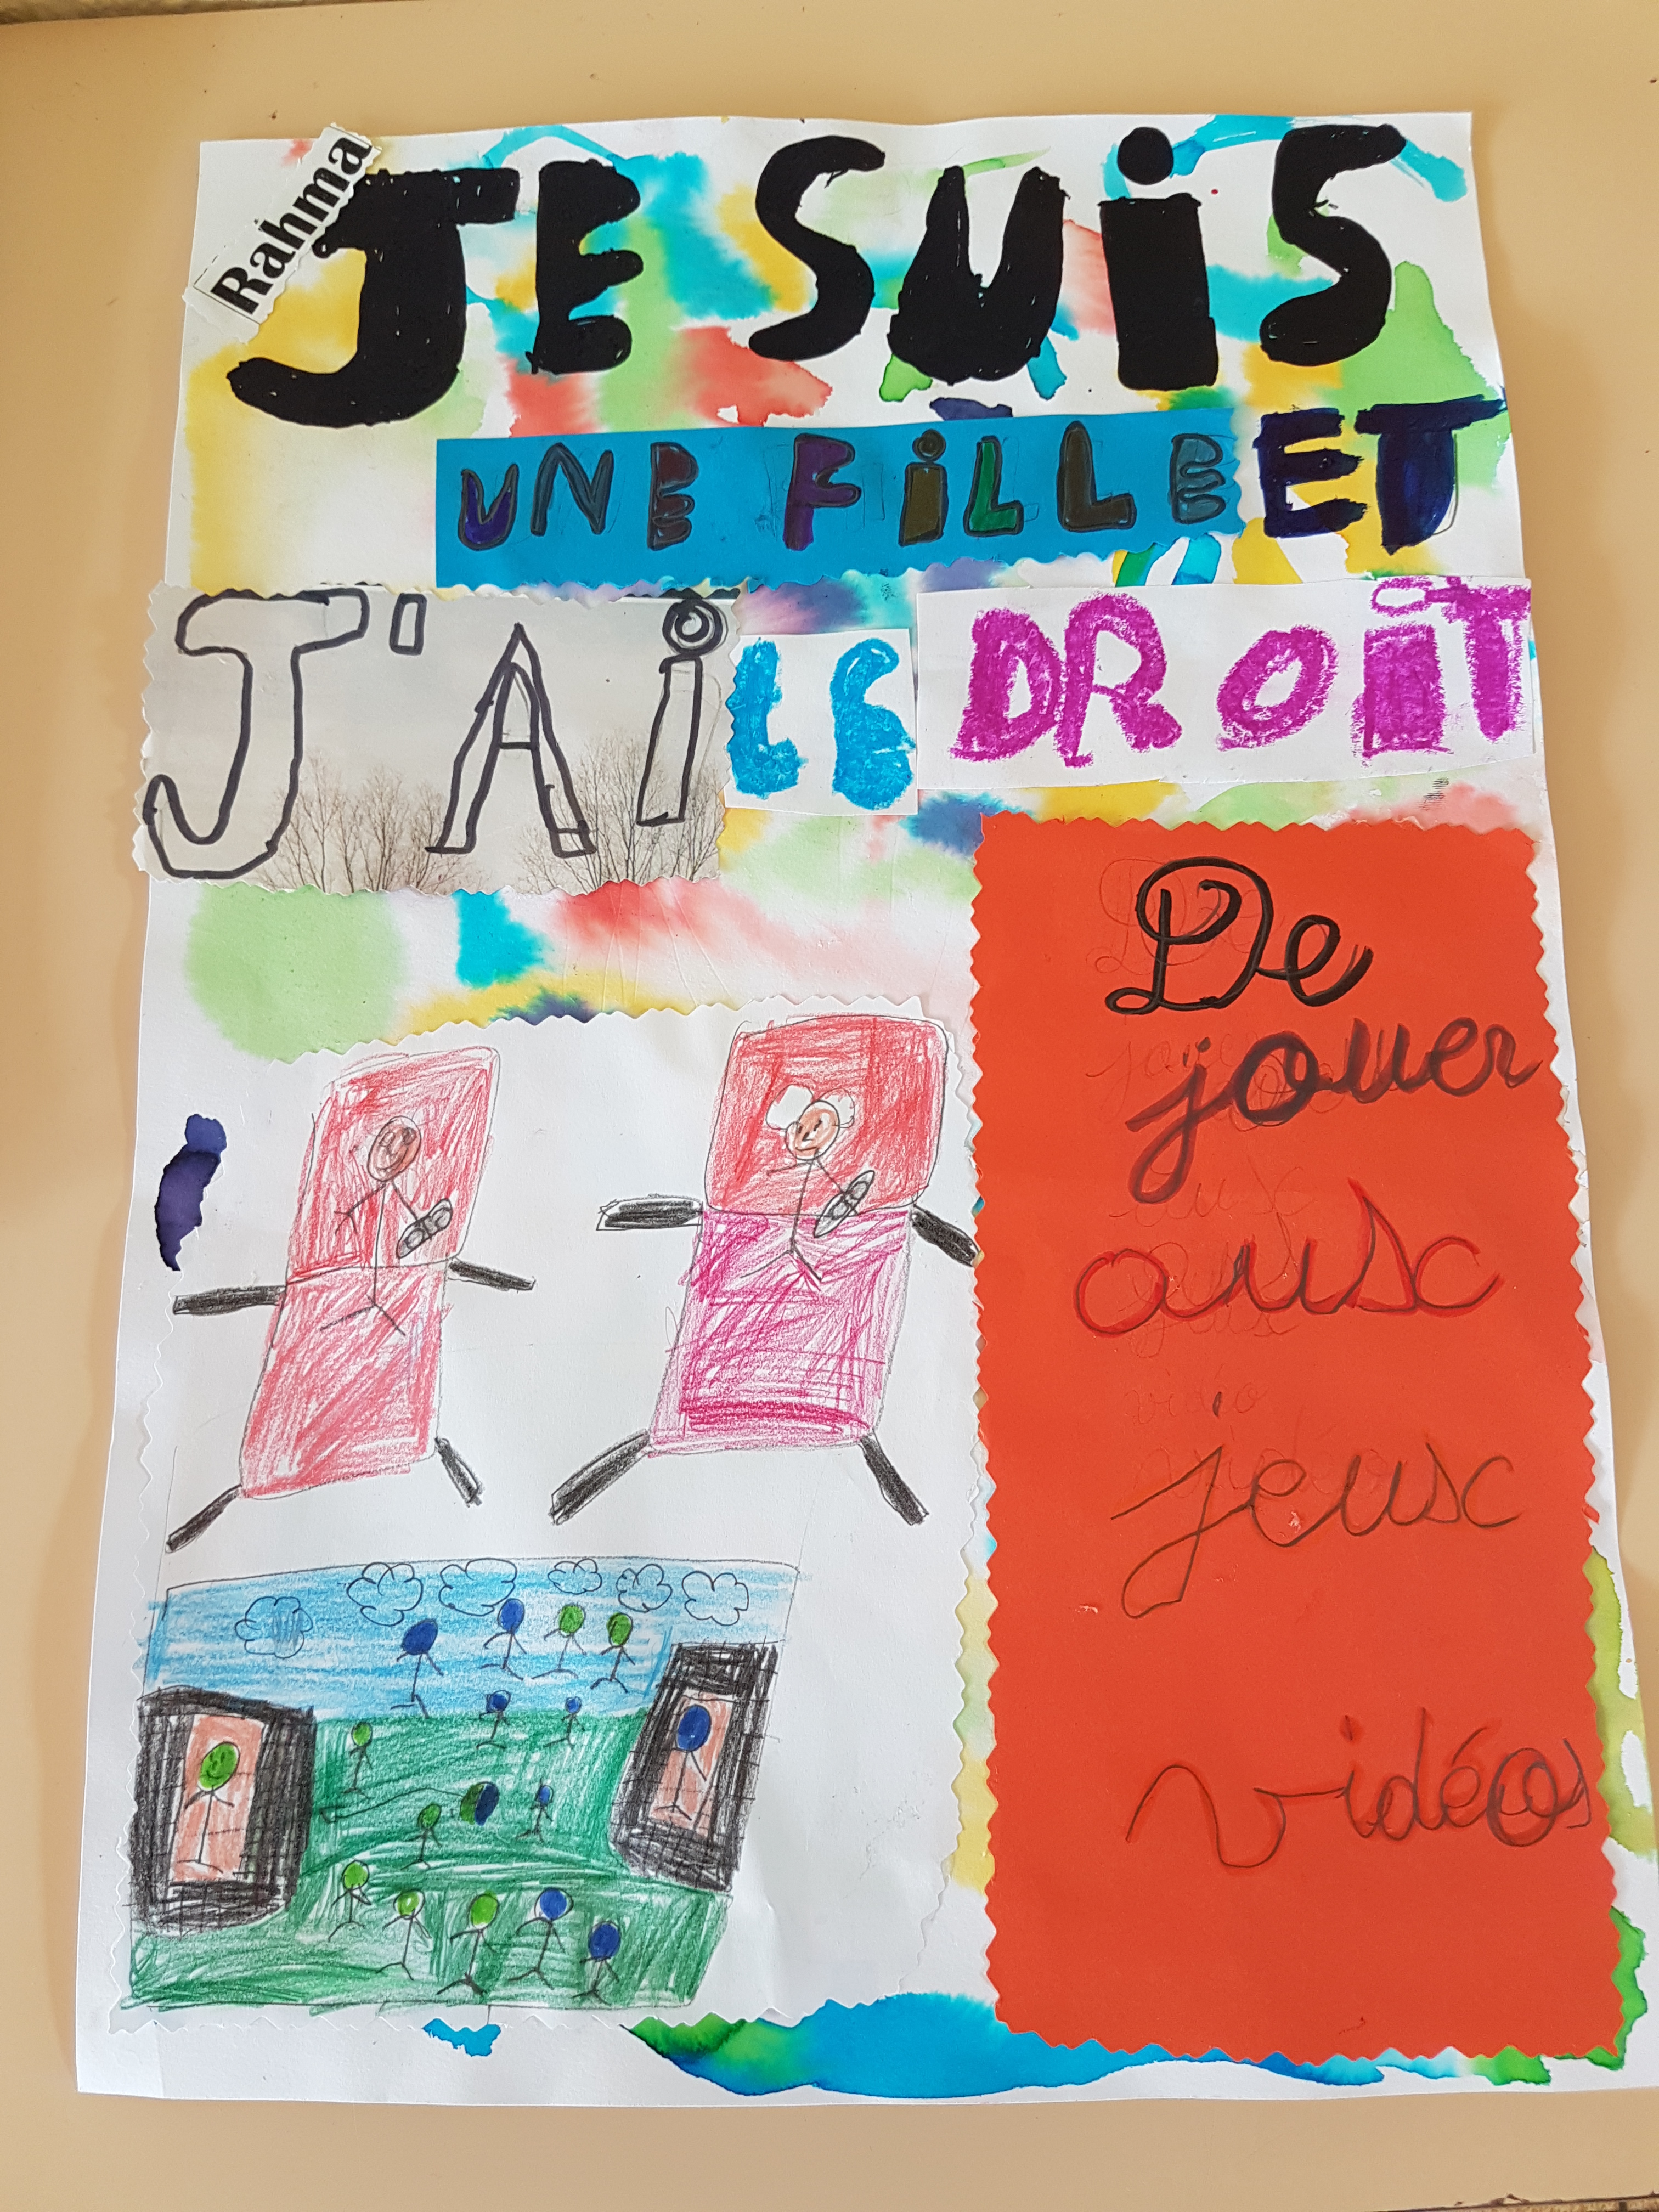 Rahma
JE SUiS
UNE FiLLE ET
J'Ai LE DROiT
De
jouer
aux
jeux
vidéos